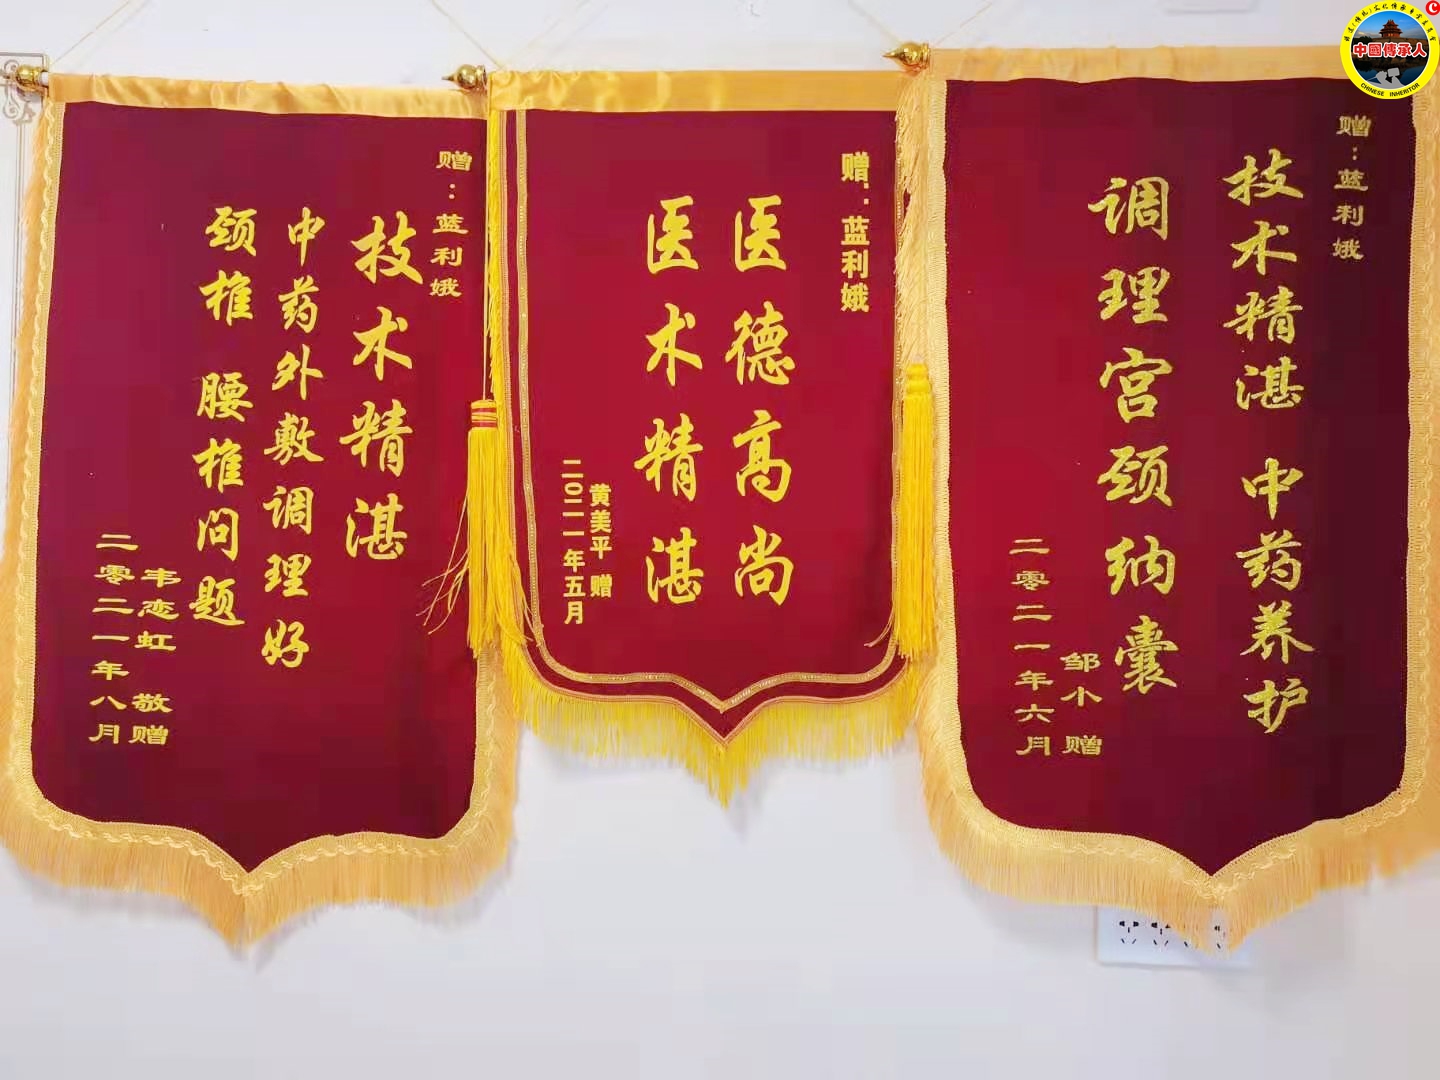 赠：蓝利娥
技术精湛
中药外敷调理好
颈椎 腰椎问题
韦恋虹 敬赠
二零二一年八月
赠：蓝利娥
医德高尚
医术精湛
黄美平 赠
二〇二一年五月
赠：蓝利娥
技术精湛 中药养护
调理宫颈纳囊
邹小 赠
二零二一年六月
中國傳承人
CHINESE INHERITOR